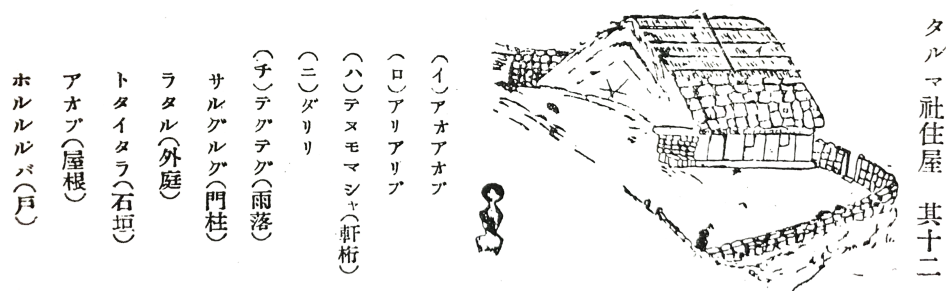 タルマ社住屋 其十二
(イ)アオアオブ
(ロ)アリアリブ
(ハ)テヌモマシャ(軒桁)
(ニ)ダリリ
(チ)テグテグ(雨落)
サルグルグ(門柱)
ラタル(外庭)
トタイタラ(石垣)
アオブ(屋根)
ホルルルバ(戸)